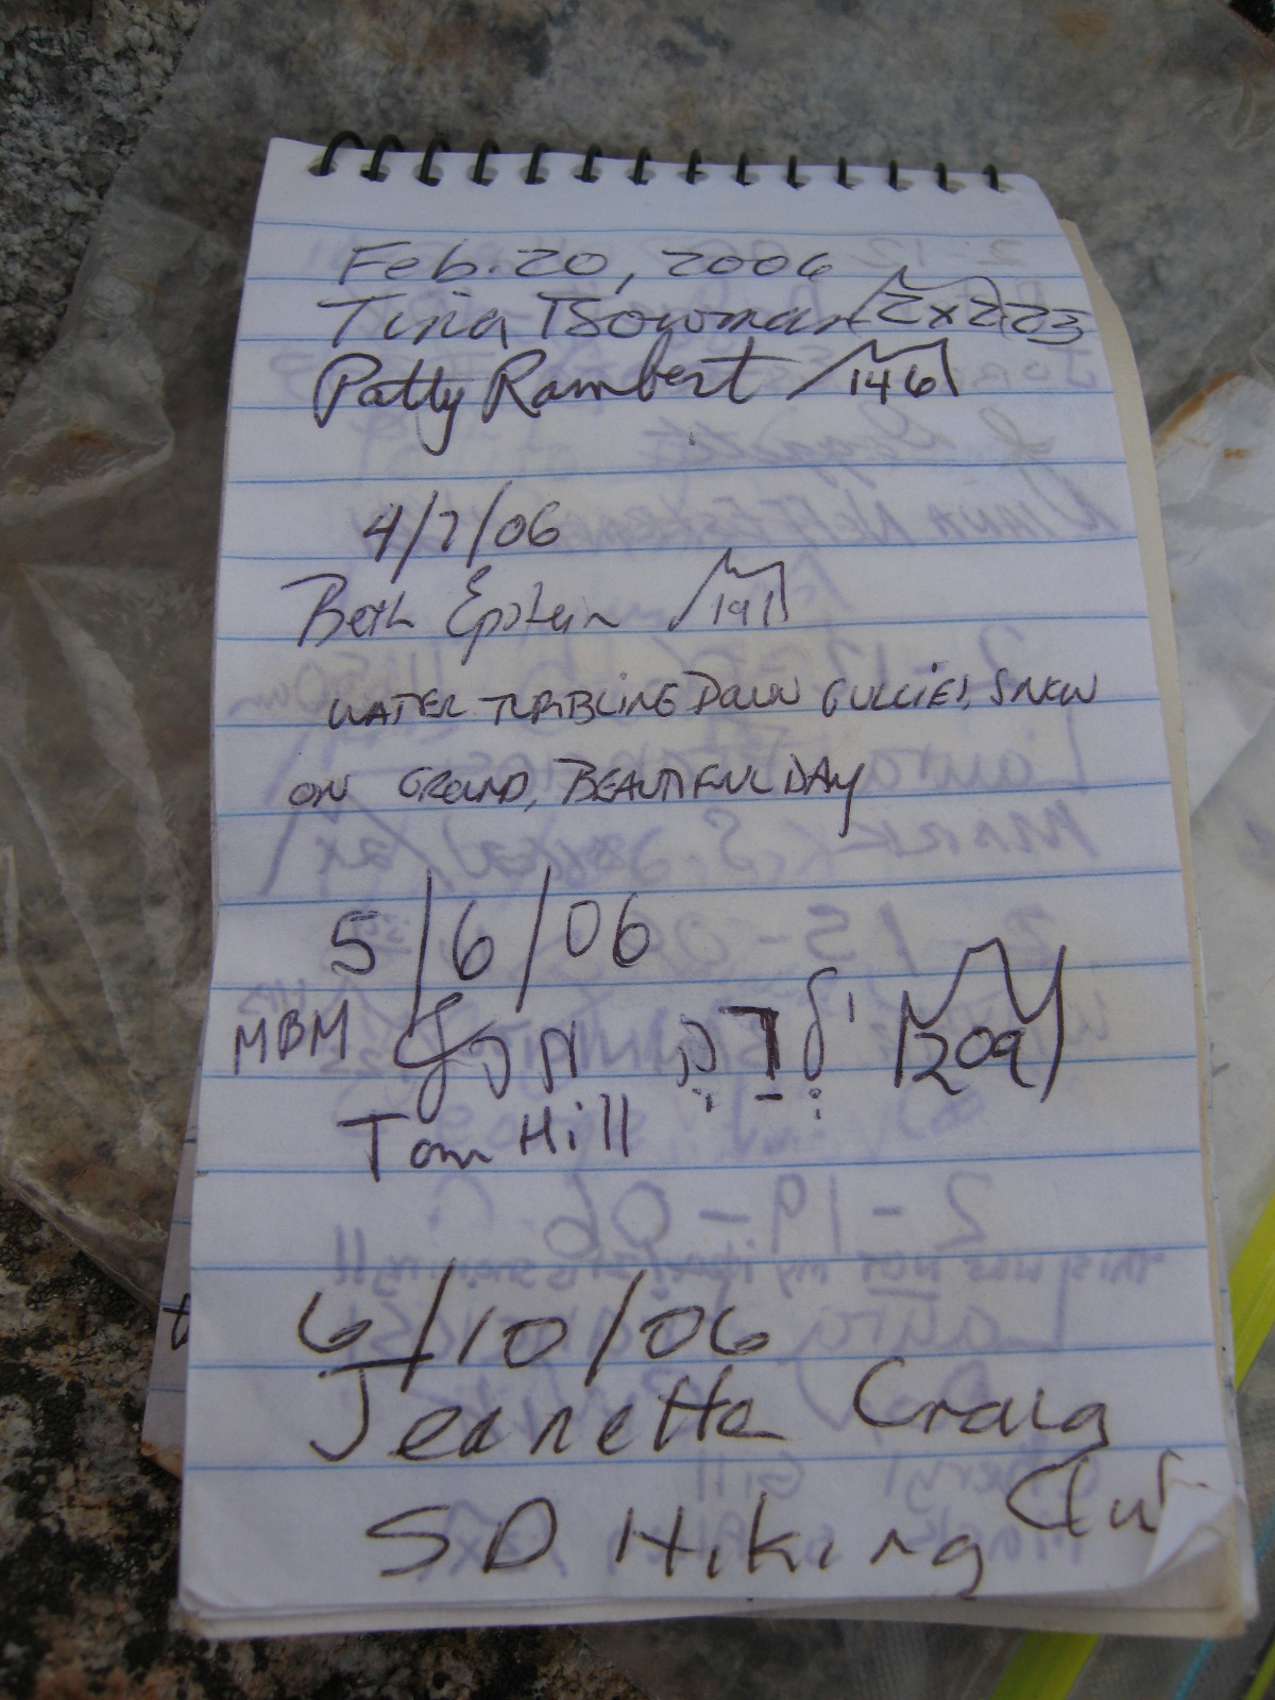 Feb. 20, 2006
Tina Bowman 2x2
Patty Rambert 146
4/7/06
Beth Epstein 191
WATER TUMBLING DOWN GULLIES, SNOW
ON GROUND, BEAUTIFUL DAY
5/6/06
MBM 209
Tom Hill
6/10/06
Jeanette Craig
SD Hiking Club